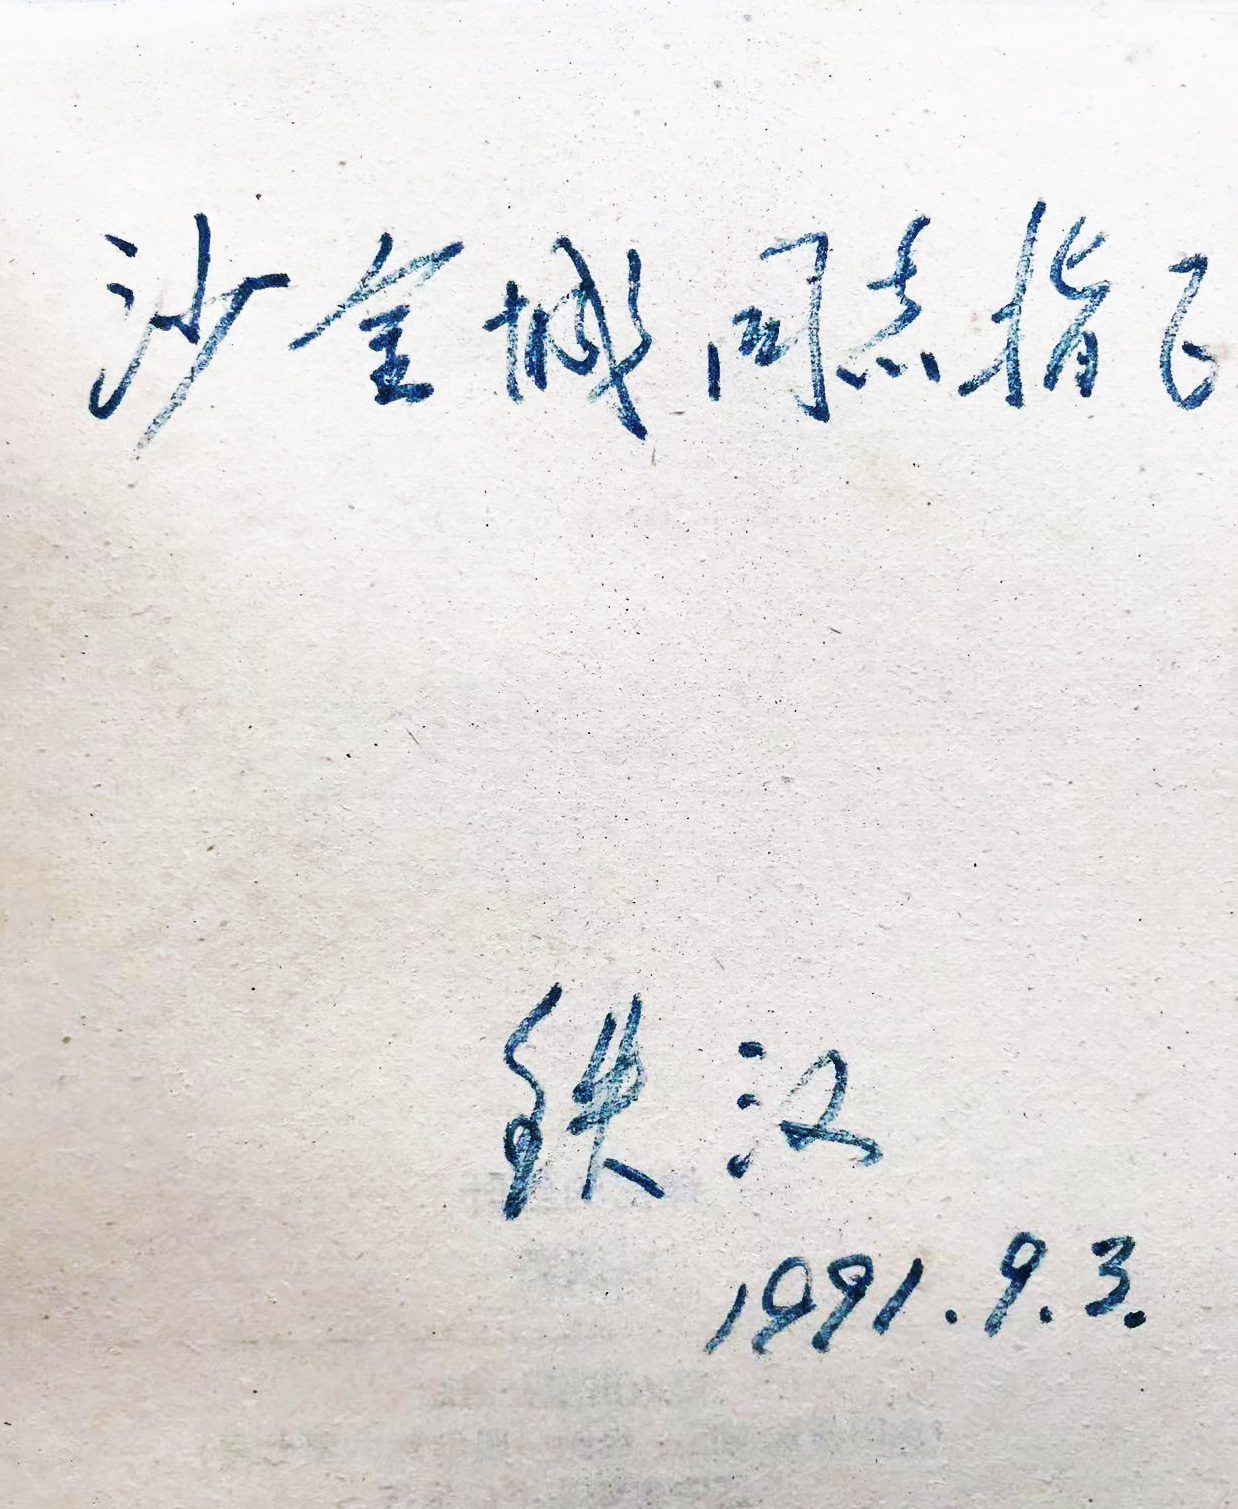 沙金城同志指正
铁汉
1991.9.3.